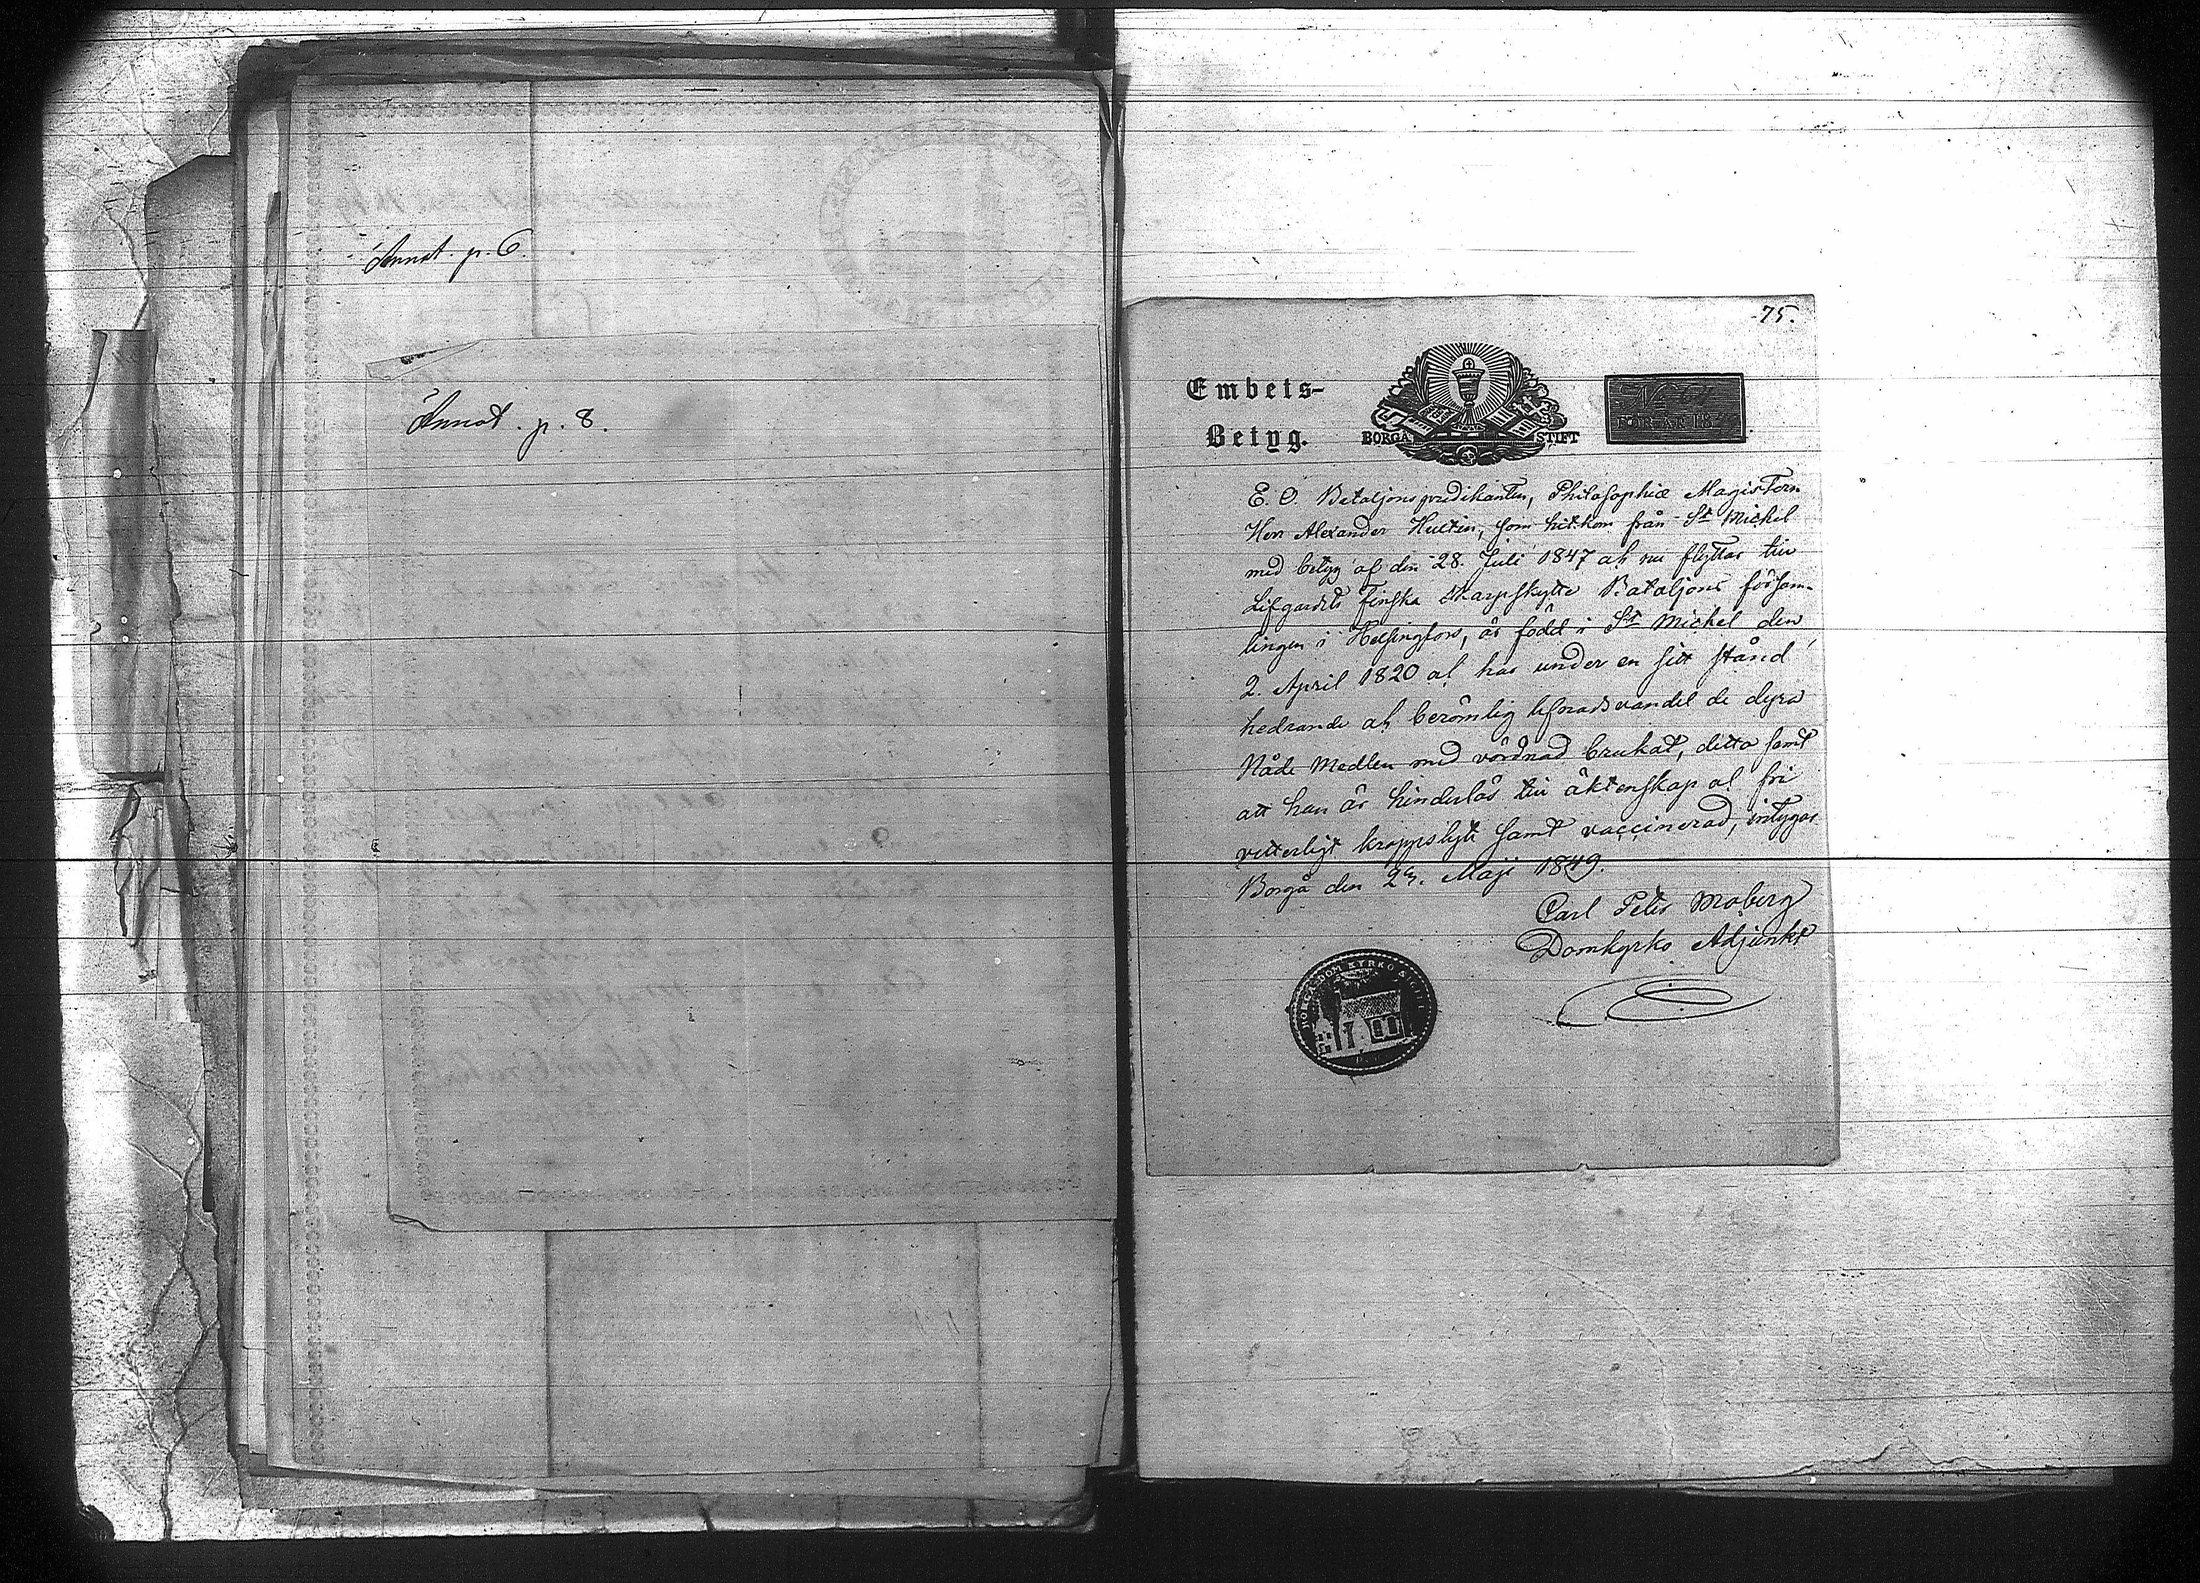 Annot. p. 6.
Annot. p. 8.
75.
Embets-
Betyg.
BORGÅ STIFT
FÖR ÅR 18
E. O. Bataljonspredikanten, Philosophiæ Magistern
Herr Alexander Hultin, som hitkom från St Michel
med betyg af den 28. Juli 1847 och nu flyttar till
Lifgardets Finska Skarpskytte Bataljons försam-
lingen i Helsingfors, är född i St Michel den
2. April 1820 och har under en sitt stånd
hedrande och berömlig lefnadsvandel de dyra
Nåde Medlen med vördnad brukat, detta samt
att han är hinderlös till äktenskap och fri
vetterligt kroppslyte samt vaccinerad, intygar
Borgå den Maji 1849.
Carl Peter Moberg
Domkyrko Adjunkt
BORGÅ DOM KYRKO SIGILL